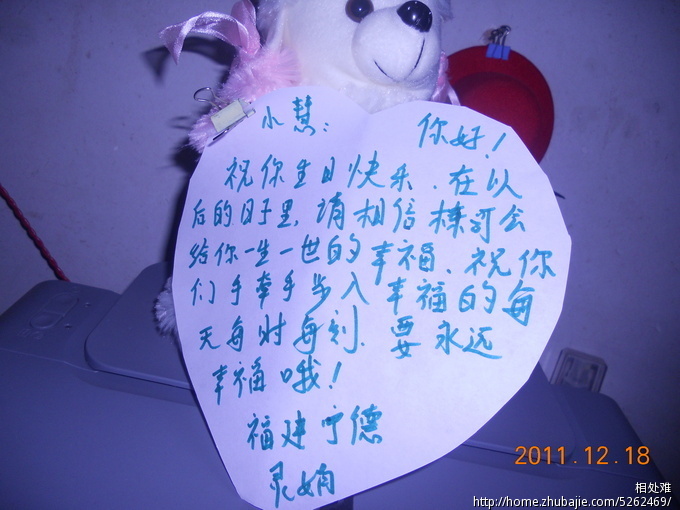 小慧: 你好!
祝你生日快乐.在以
后的日子里,请相信栋河会
给你一生一世的幸福、祝你
们手牵手步入幸福的每
天每时每刻.要永远
幸福哦!
福建宁德
灵娟
2011.12.18
相处难
http://home.zhubajie.com/5262469/